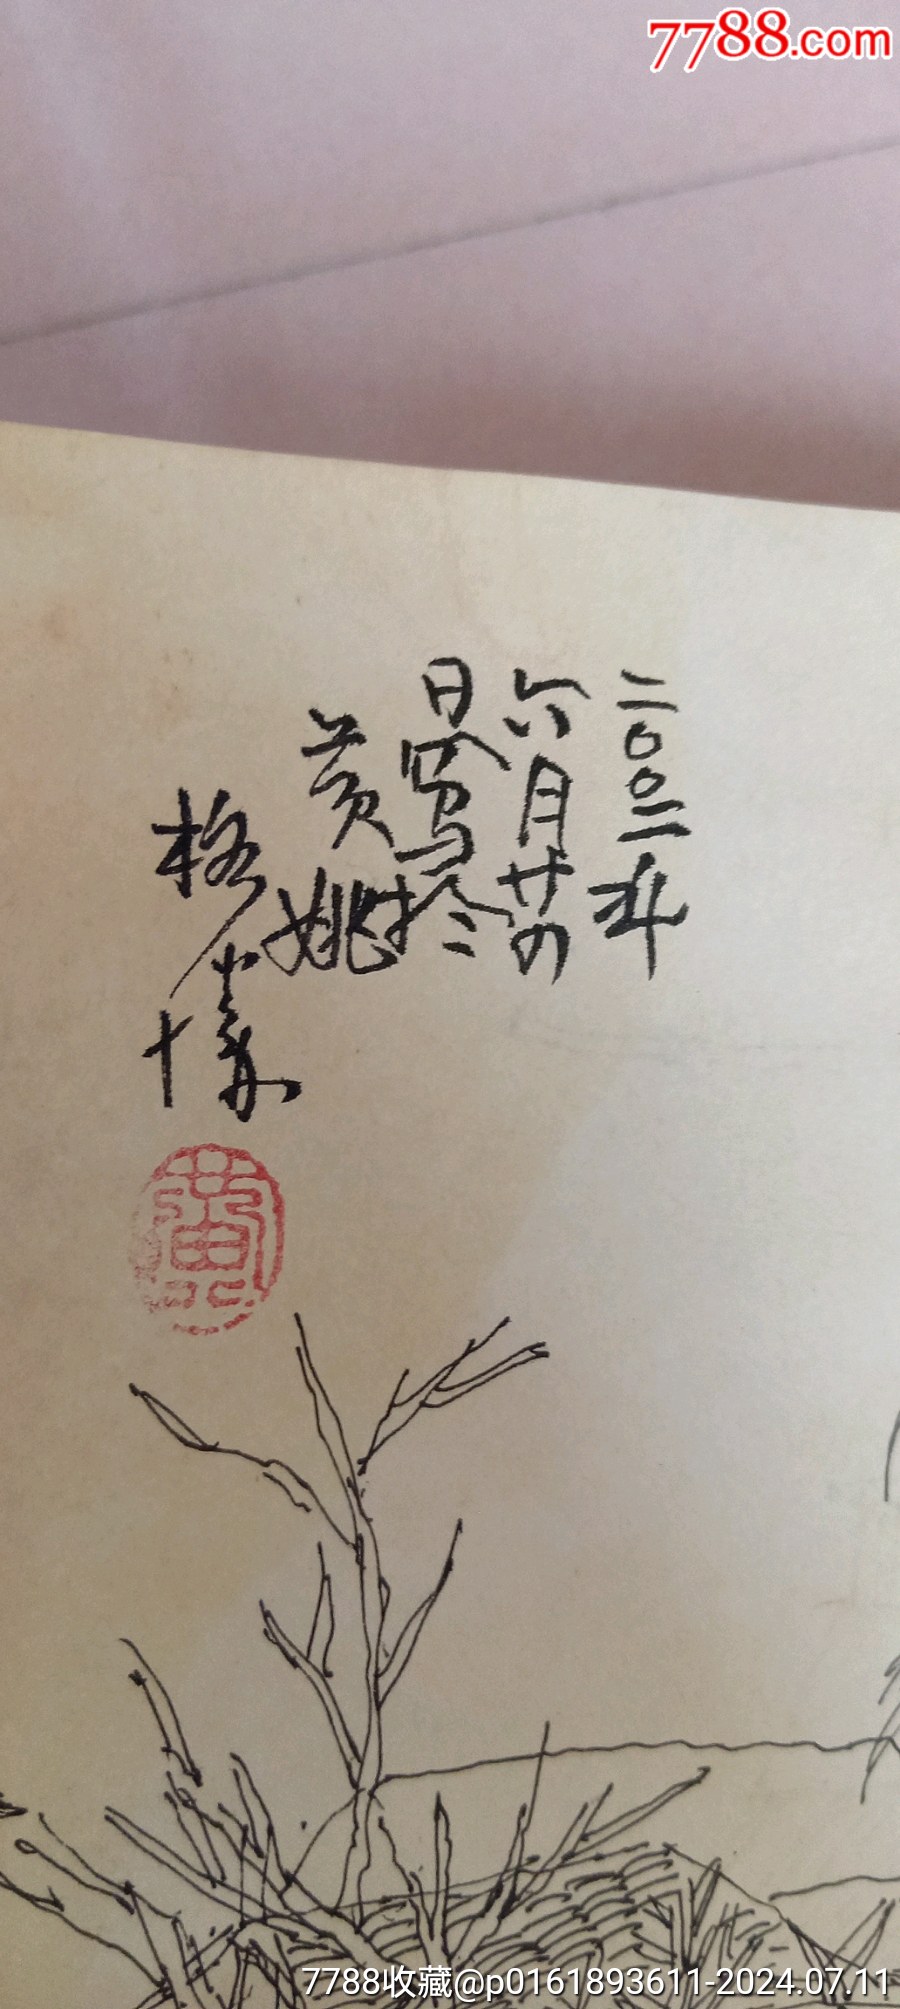 7788.com
二〇〇二年
六月廿四
日写於
黄姚
格
黄
7788收藏@p0161893611-2024.07.11